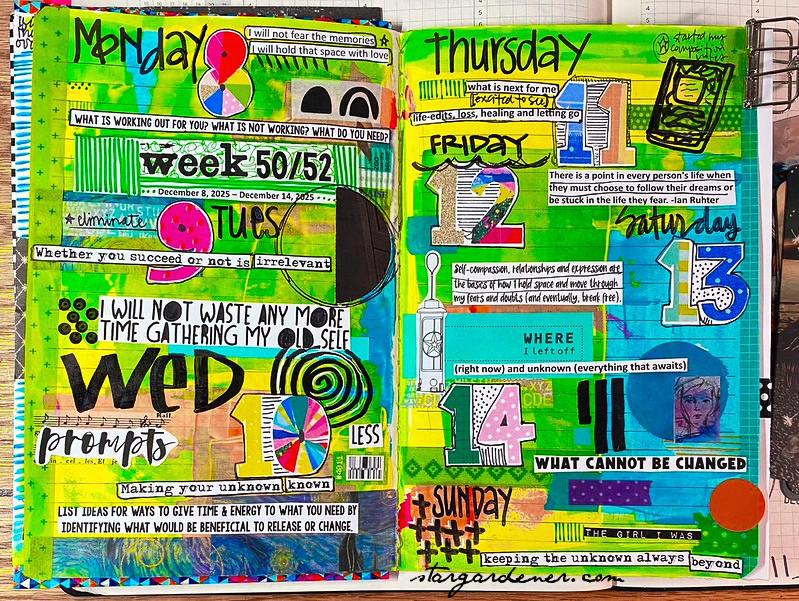 MONDAY
8
I will not fear the memories
I will hold that space with love
WHAT IS WORKING OUT FOR YOU? WHAT IS NOT WORKING? WHAT DO YOU NEED?
week 50/52
December 8, 2025 – December 14, 2025
eliminate
9
TUES
Whether you succeed or not is irrelevant
I WILL NOT WASTE ANY MORE
TIME GATHERING MY OLD SELF
WED
10
Rall.
prompts
LESS
Making your unknown known
LIST IDEAS FOR WAYS TO GIVE TIME & ENERGY TO WHAT YOU NEED BY
IDENTIFYING WHAT WOULD BE BENEFICIAL TO RELEASE OR CHANGE.
THURSDAY
started my
composition
what is next for me
(excited to see)
life-edits, loss, healing and letting go
11
FRIDAY
12
There is a point in every person's life when
they must choose to follow their dreams or
be stuck in the life they fear. -Ian Ruhter
Saturday
13
Self-compassion, relationships and expression are
the basics of how I hold space and move through
my fears and doubts (and eventually, break free).
WHERE
I left off
(right now) and unknown (everything that awaits)
14
WHAT CANNOT BE CHANGED
SUNDAY
THE GIRL I WAS
keeping the unknown always beyond
stargardener.com